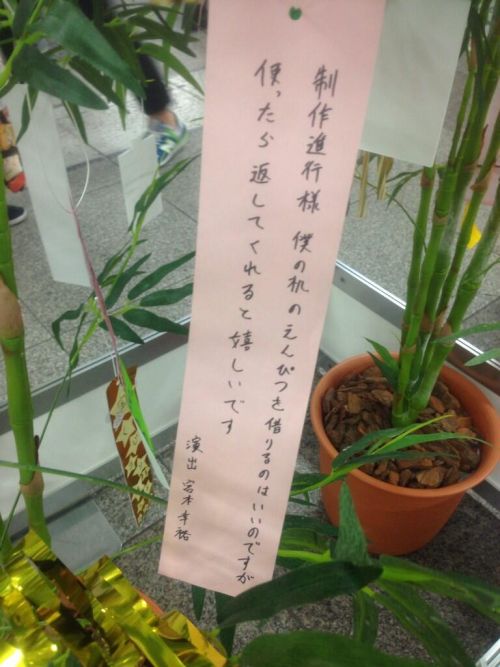 制作進行様 僕の机のえんぴつを借りるのはいいのですが
使ったら返してくれると嬉しいです
演出 宮本幸裕